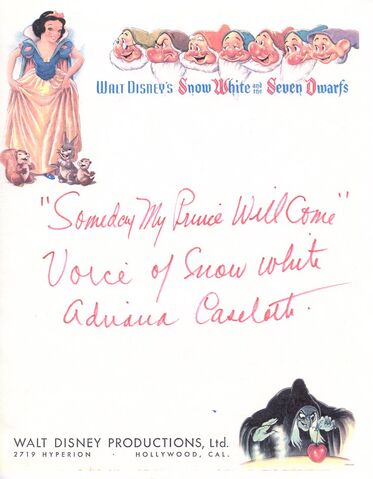 WALT DISNEY'S Snow White and the Seven Dwarfs
"Someday My Prince Will Come"
Voice of Snow White
Adriana Caselotti
WALT DISNEY PRODUCTIONS, Ltd.
2719 HYPERION · HOLLYWOOD, CAL.